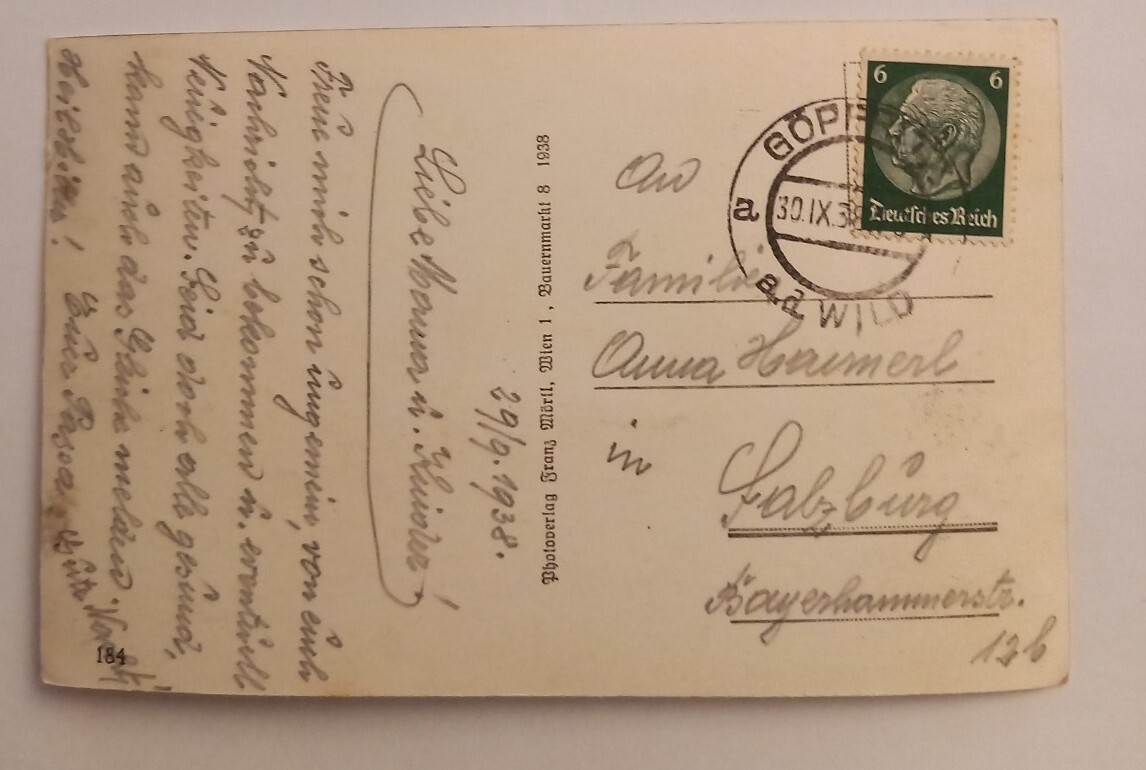 29/9.1938.
Liebe Mama u. Kinder!
Freue mich schon ungemein, von euch
Nachricht zu bekommen u. eventuell
Neuigkeiten. Seid doch alle gesund,
kann auch das Gleiche melden.
Heil Hitler! Euer Papa
184
Photoverlag Franz Mörtl, Wien 1, Bauernmarkt 8 1938
6 6
Deutsches Reich
GÖPF
a 30.IX.38
a.d. WILD
An
Familie
Anna Hamerl
in
Salzburg
Bayerhammerstr.
12b